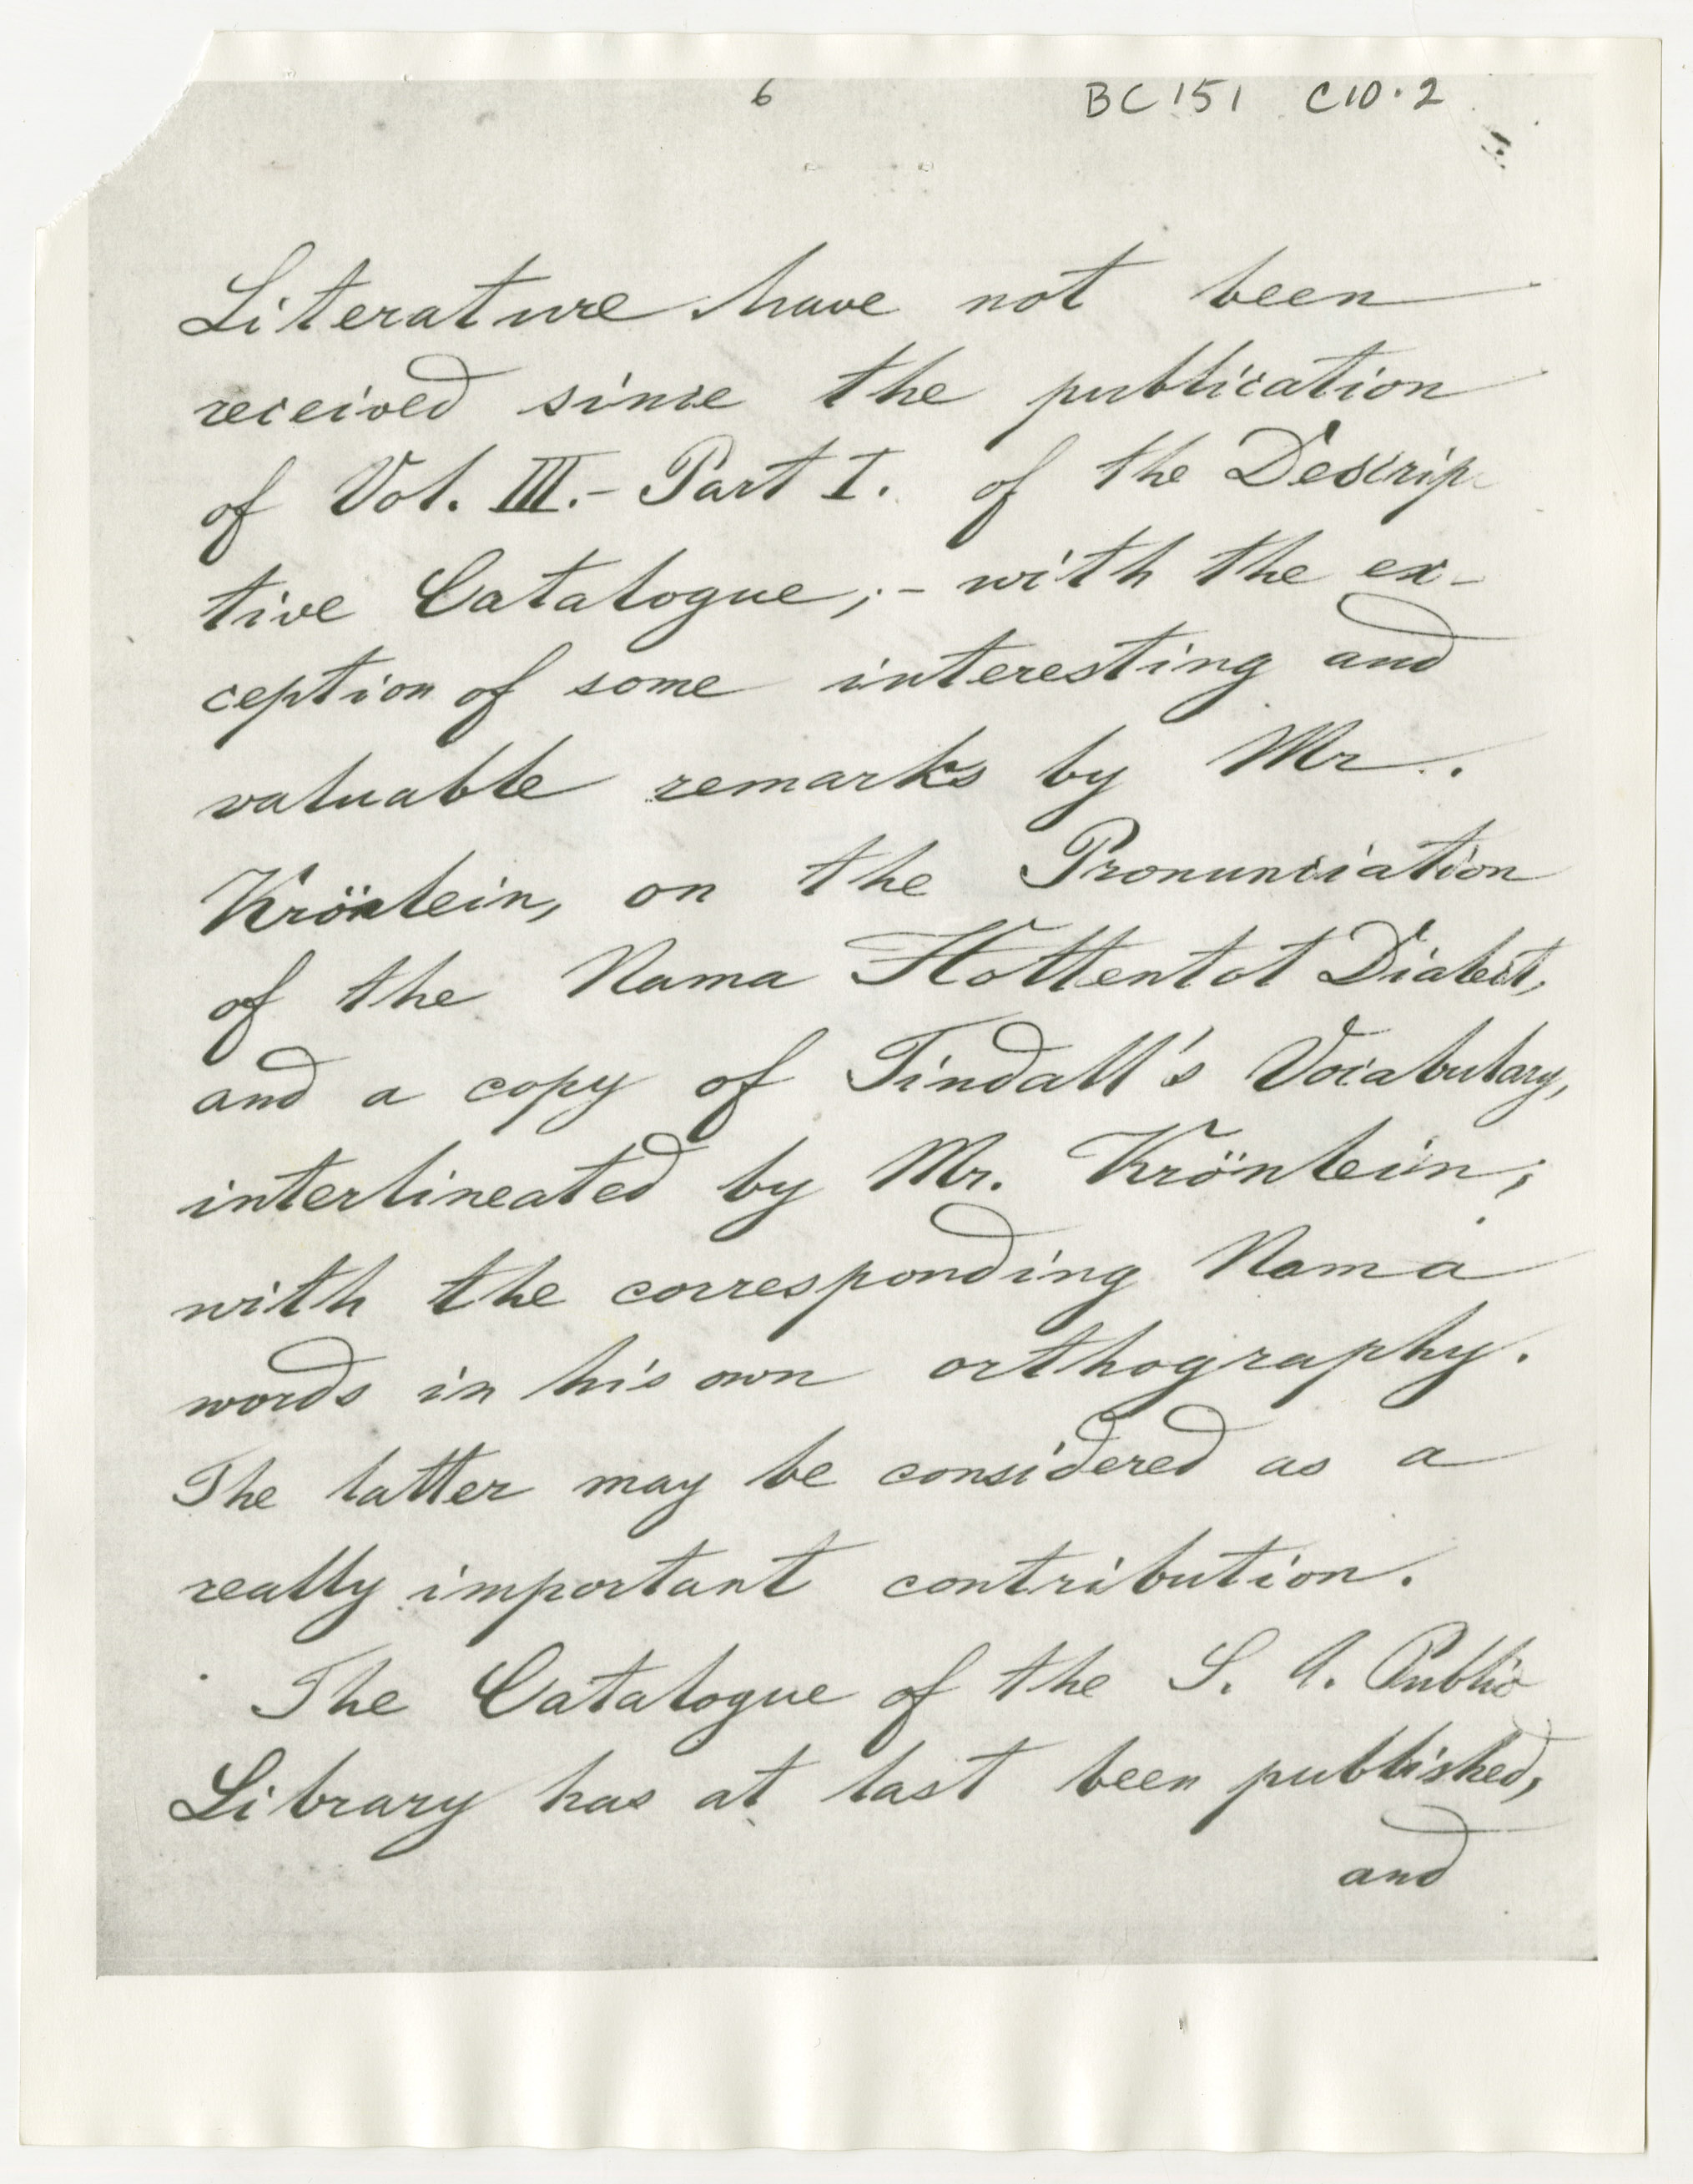 6
BC 151 C10.2
Literature have not been
received since the publication
of Vol. III.- Part I. of the Descrip-
tive Catalogue;- with the ex-
ception of some interesting and
valuable remarks by Mr.
Krönlein, on the Pronunciation
of the Nama Hottentot Dialect,
and a copy of Tindall's Vocabulary,
interlineated by Mr. Krönlein,
with the corresponding Nama
words in his own orthography.
The latter may be considered as a
really important contribution.
The Catalogue of the S. A. Public
Library has at last been published,
and